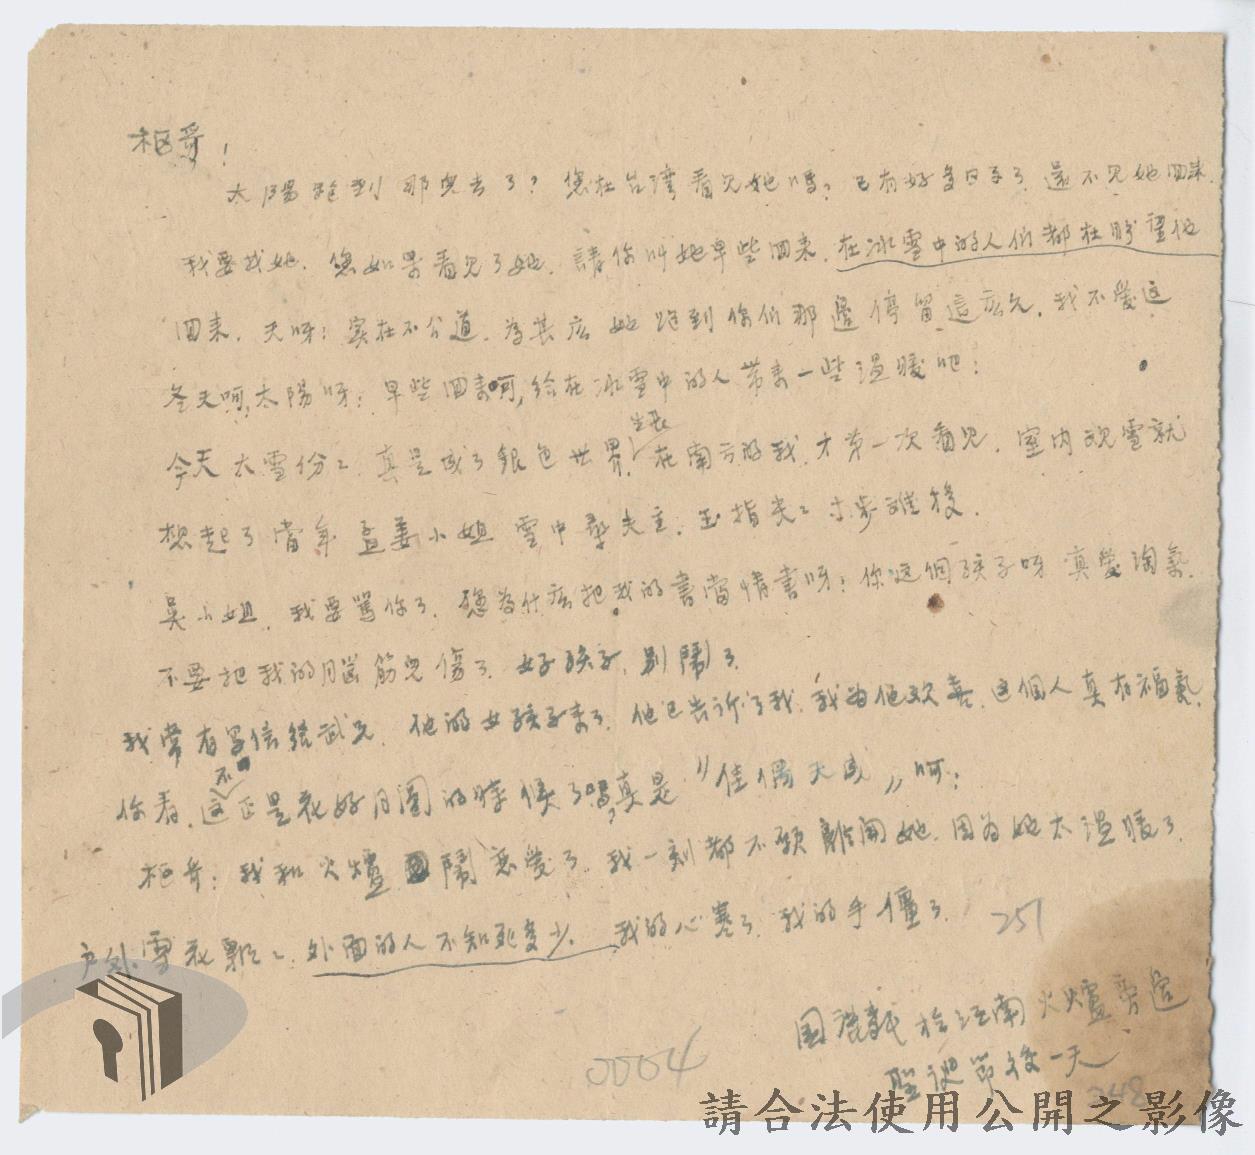 柜哥！
太陽跑到那兒去了？您在台灣看見她嗎？已有好多日子了還不見她回來.
我要找她.您如果看見了她.請你叫她早些回來.在冰雪中的人們都在盼望他
回來.天呀！实在不公道.為甚広她跑到你们那邊停留這広久.我不愛这
冬天呵,太陽呀！早些回来呵,給在冰雪中的人带来一些溫暖吧！
今天大雪份々.真是成了銀色世界.生長在南方的我.才第一次看見.室內观雪就
想起了當年孟姜小姐雪中尋夫主.玉指尖々寸步难移.
吳小姐.我要駡你了.您為什広把我的書當情書呀！你这個孩子呀真愛淘氣.
不要把我的腦筋兒傷了.好孩子.别鬧了.
我常有写信給武兄.他的女孩子来了.他已告訴了我.我為他欢喜.这個人真有福氣.
你看.这不正是花好月圓的時候了嗎,真是"佳偶天成"呵！
柜哥！我和火爐鬧恋愛了.我一刻都不願離開她.因為她太溫暖了.
户外雪花飄々.外面的人不知死多少.我的心寒了.我的手僵了.
251
國 於江南火爐旁邊
聖誕節後一天
0004
248
請合法使用公開之影像